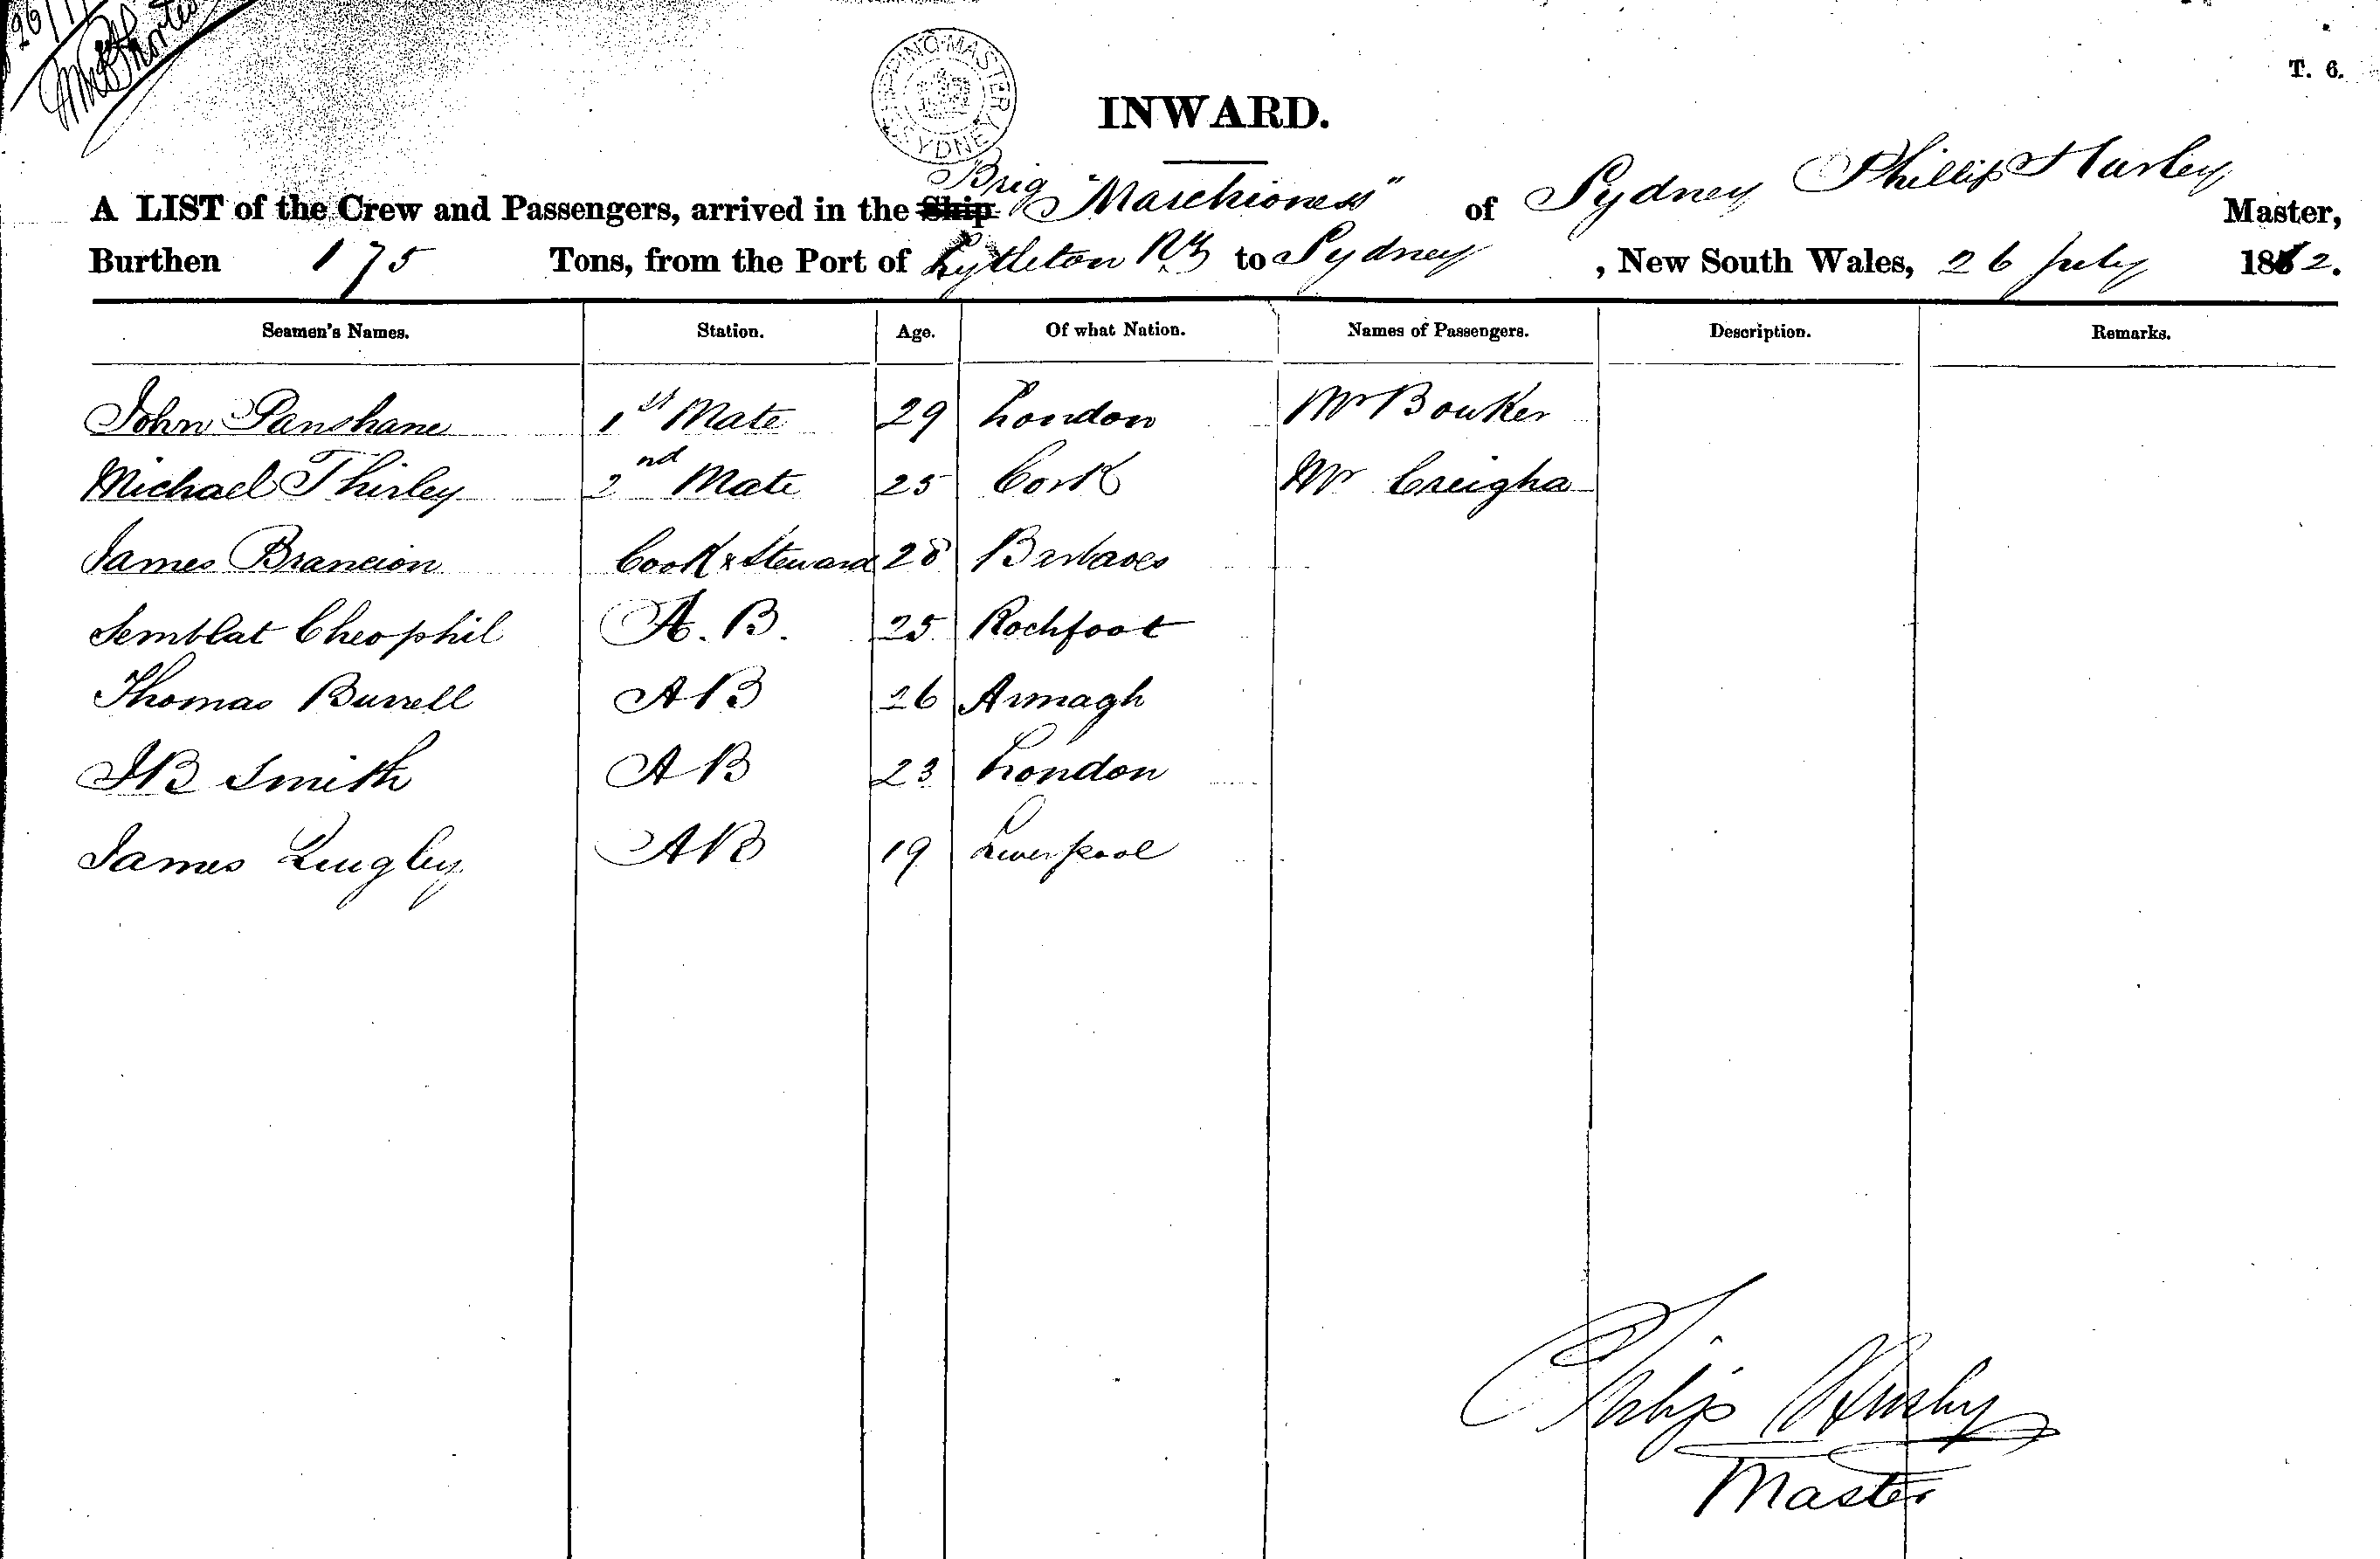 T. 6.
SHIPPING MASTER SYDNEY
INWARD.
A LIST of the Crew and Passengers, arrived in the Ship Brig "Marchioness" of Sydney Phillip Hurley Master,
Burthen 175 Tons, from the Port of Lyttleton NZ to Sydney, New South Wales, 26 July 1862.
Seamen's Names. Station. Age. Of what Nation. Names of Passengers. Description. Remarks.
John Panshane 1st Mate 29 London Mr Bowker
Michael Thirley 2nd Mate 25 Cork Mr Creigha
James Brancion Cook & Steward 28
Semblat Cheophil A. B. 25 Rochfoot
Thomas Burrell AB 26 Armagh
JB Smith AB 23 London
James AB 19 Liverpool
Philip
Master